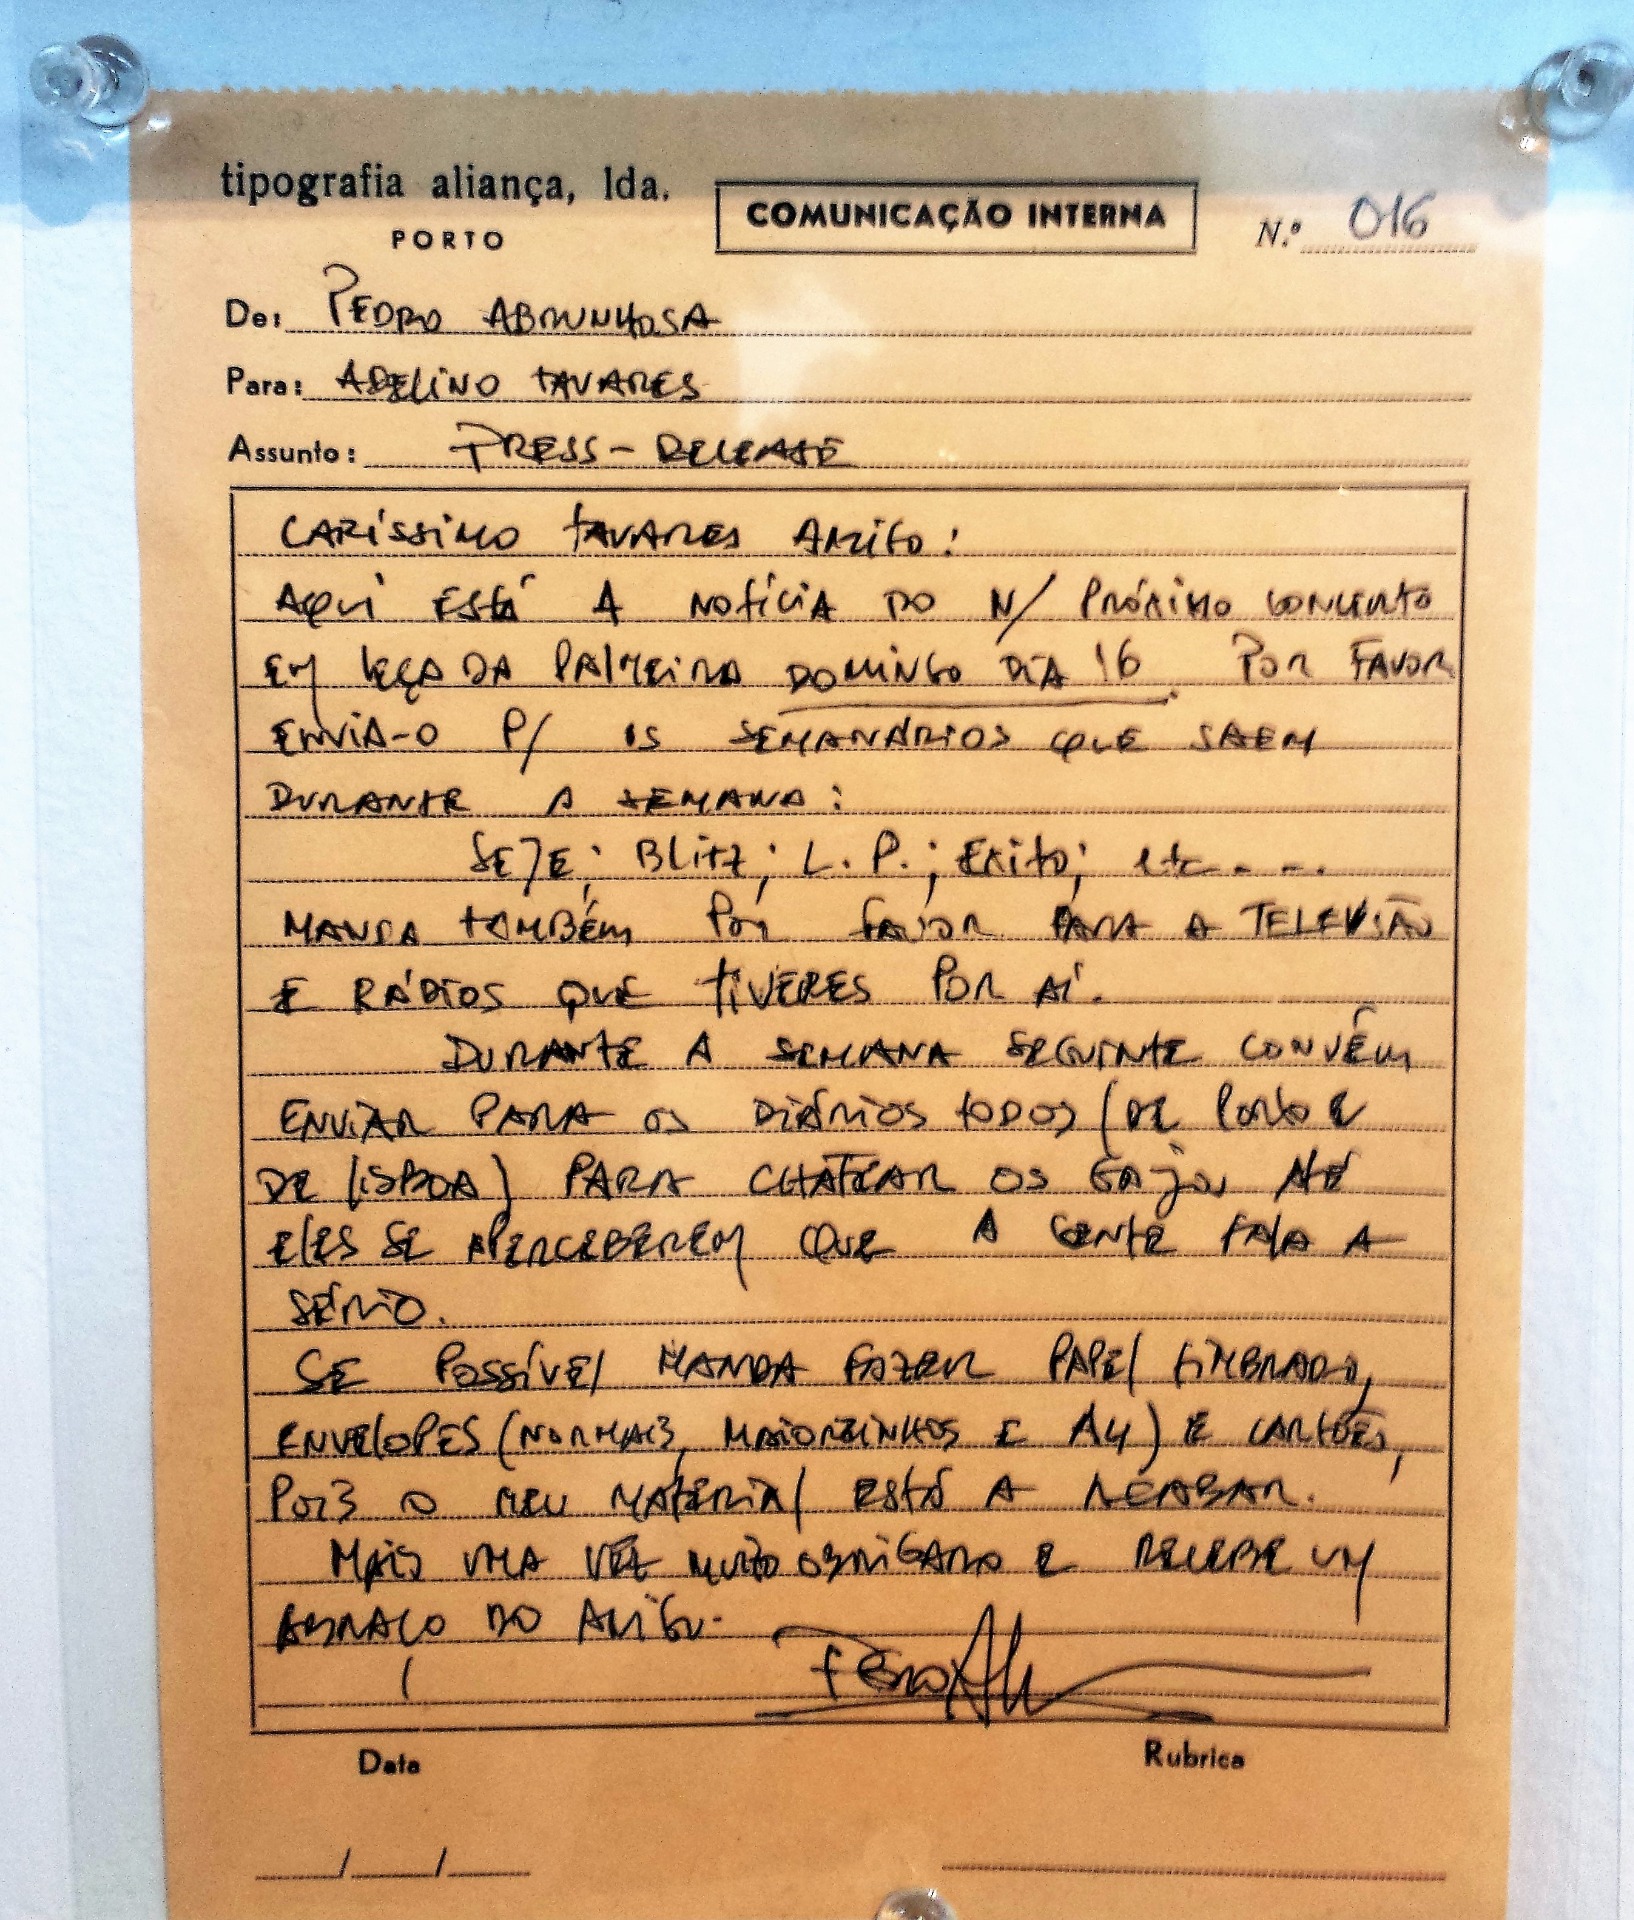 tipografia aliança, lda.
PORTO
COMUNICAÇÃO INTERNA
N.º 016
De: PEDRO ABRUNHOSA
Para: ADELINO TAVARES
Assunto: PRESS-RELEASE
CARÍSSIMO TAVARES AMIGO:
AQUI ESTÁ A NOTÍCIA DO N/ PRÓXIMO CONCERTO
EM LEÇA DA PALMEIRA DOMINGO DIA 16. POR FAVOR
ENVIA-O P/ OS SEMANÁRIOS QUE SAEM
DURANTE A SEMANA:
SE7E; Blitz; L.P.; Exito; etc....
MANDA TAMBÉM POR FAVOR PARA A TELEVISÃO
E RÁDIOS QUE TIVERES POR AÍ.
DURANTE A SEMANA SEGUINTE CONVÉM
ENVIAR PARA OS DIÁRIOS TODOS (DE PORTO E
DE LISBOA) PARA CHATEAR OS GAJOS ATÉ
ELES SE APERCEBEREM QUE A GENTE FALA A
SÉRIO.
SE POSSÍVEL MANDA FAZER PAPEL TIMBRADO,
ENVELOPES (NORMAIS, MAIORZINHOS E A4) E CARTÕES,
POIS O MEU MATERIAL ESTÁ A ACABAR.
MAIS UMA VEZ MUITO OBRIGADO E RECEBE UM
ABRAÇO DO AMIGO.
Data
Rubrica